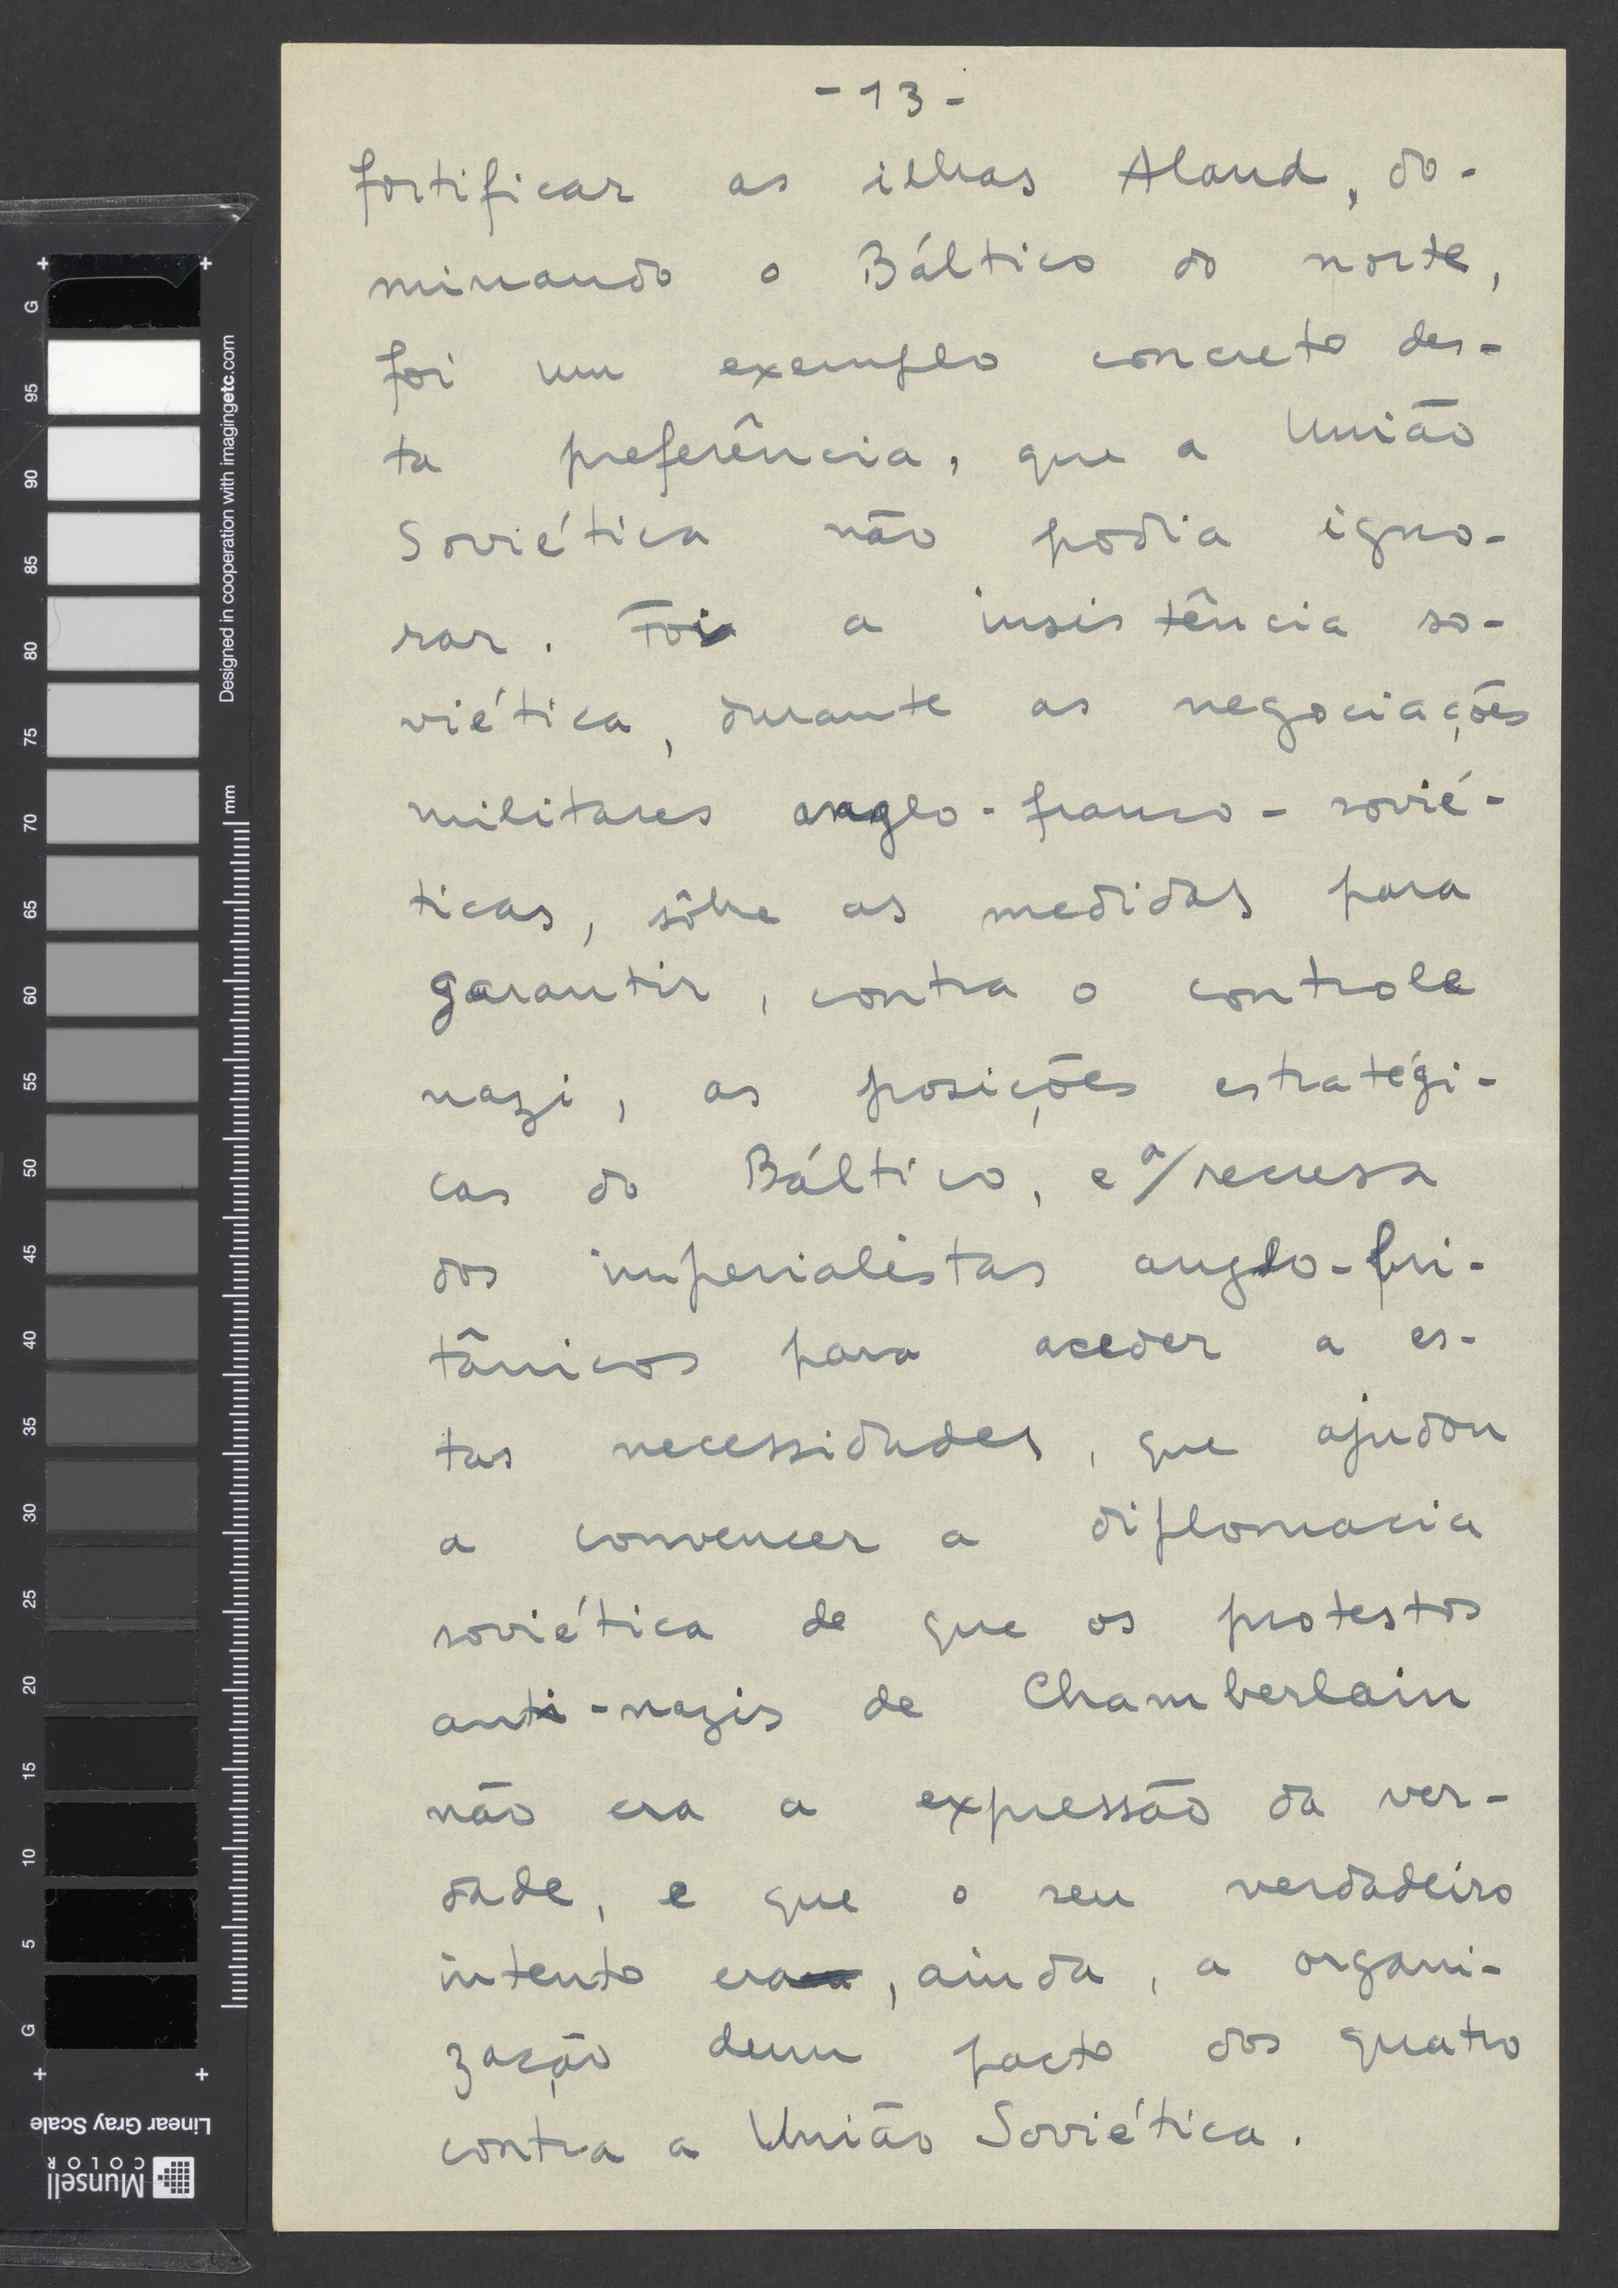 - 13 -
fortificar as ilhas Aland, do-
minando o Báltico do norte,
foi um exemplo concreto des-
ta preferência, que a União
Soviética não podia igno-
rar. Foi a insistência so-
viética, durante as negociações
militares anglo-franco-sovié-
ticas, sôbre as medidas para
garantir, contra o controle
nazi, as posições estratégi-
cas do Báltico, e a/recusa
dos imperialistas anglo-bri-
tânicos para aceder a es-
tas necessidades, que ajudou
a convencer a diplomacia
soviética de que os protestos
anti-nazis de Chamberlain
não era a expressão da ver-
dade, e que o seu verdadeiro
intento era, ainda, a organi-
zação dum pacto dos quatro
contra a União Soviética.
G
95
90
85
80
75
70
65
60
55
50
45
40
35
30
25
20
15
10
5
G
Designed in cooperation with imagingetc.com
mm
Linear Gray Scale
Munsell
COLOR